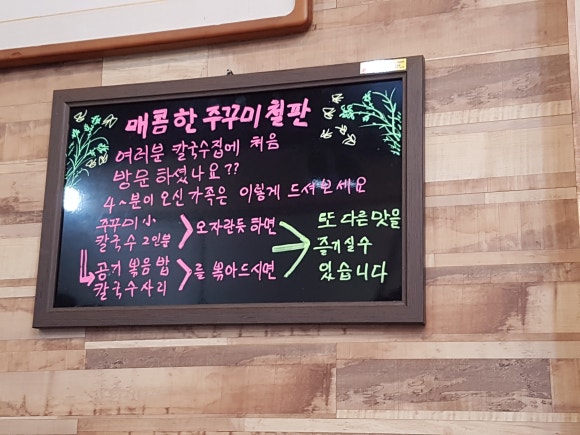 매콤한 쭈꾸미 철판
여러분 칼국수집에 처음
방문 하셨나요??
4~분이 오신 가족은 이렇게 드셔보세요
쭈꾸미 小
칼국수 2인분
모자란듯 하면
공기 볶음밥
칼국수사리
를 볶아드시면
또 다른 맛을
즐기실수
있습니다